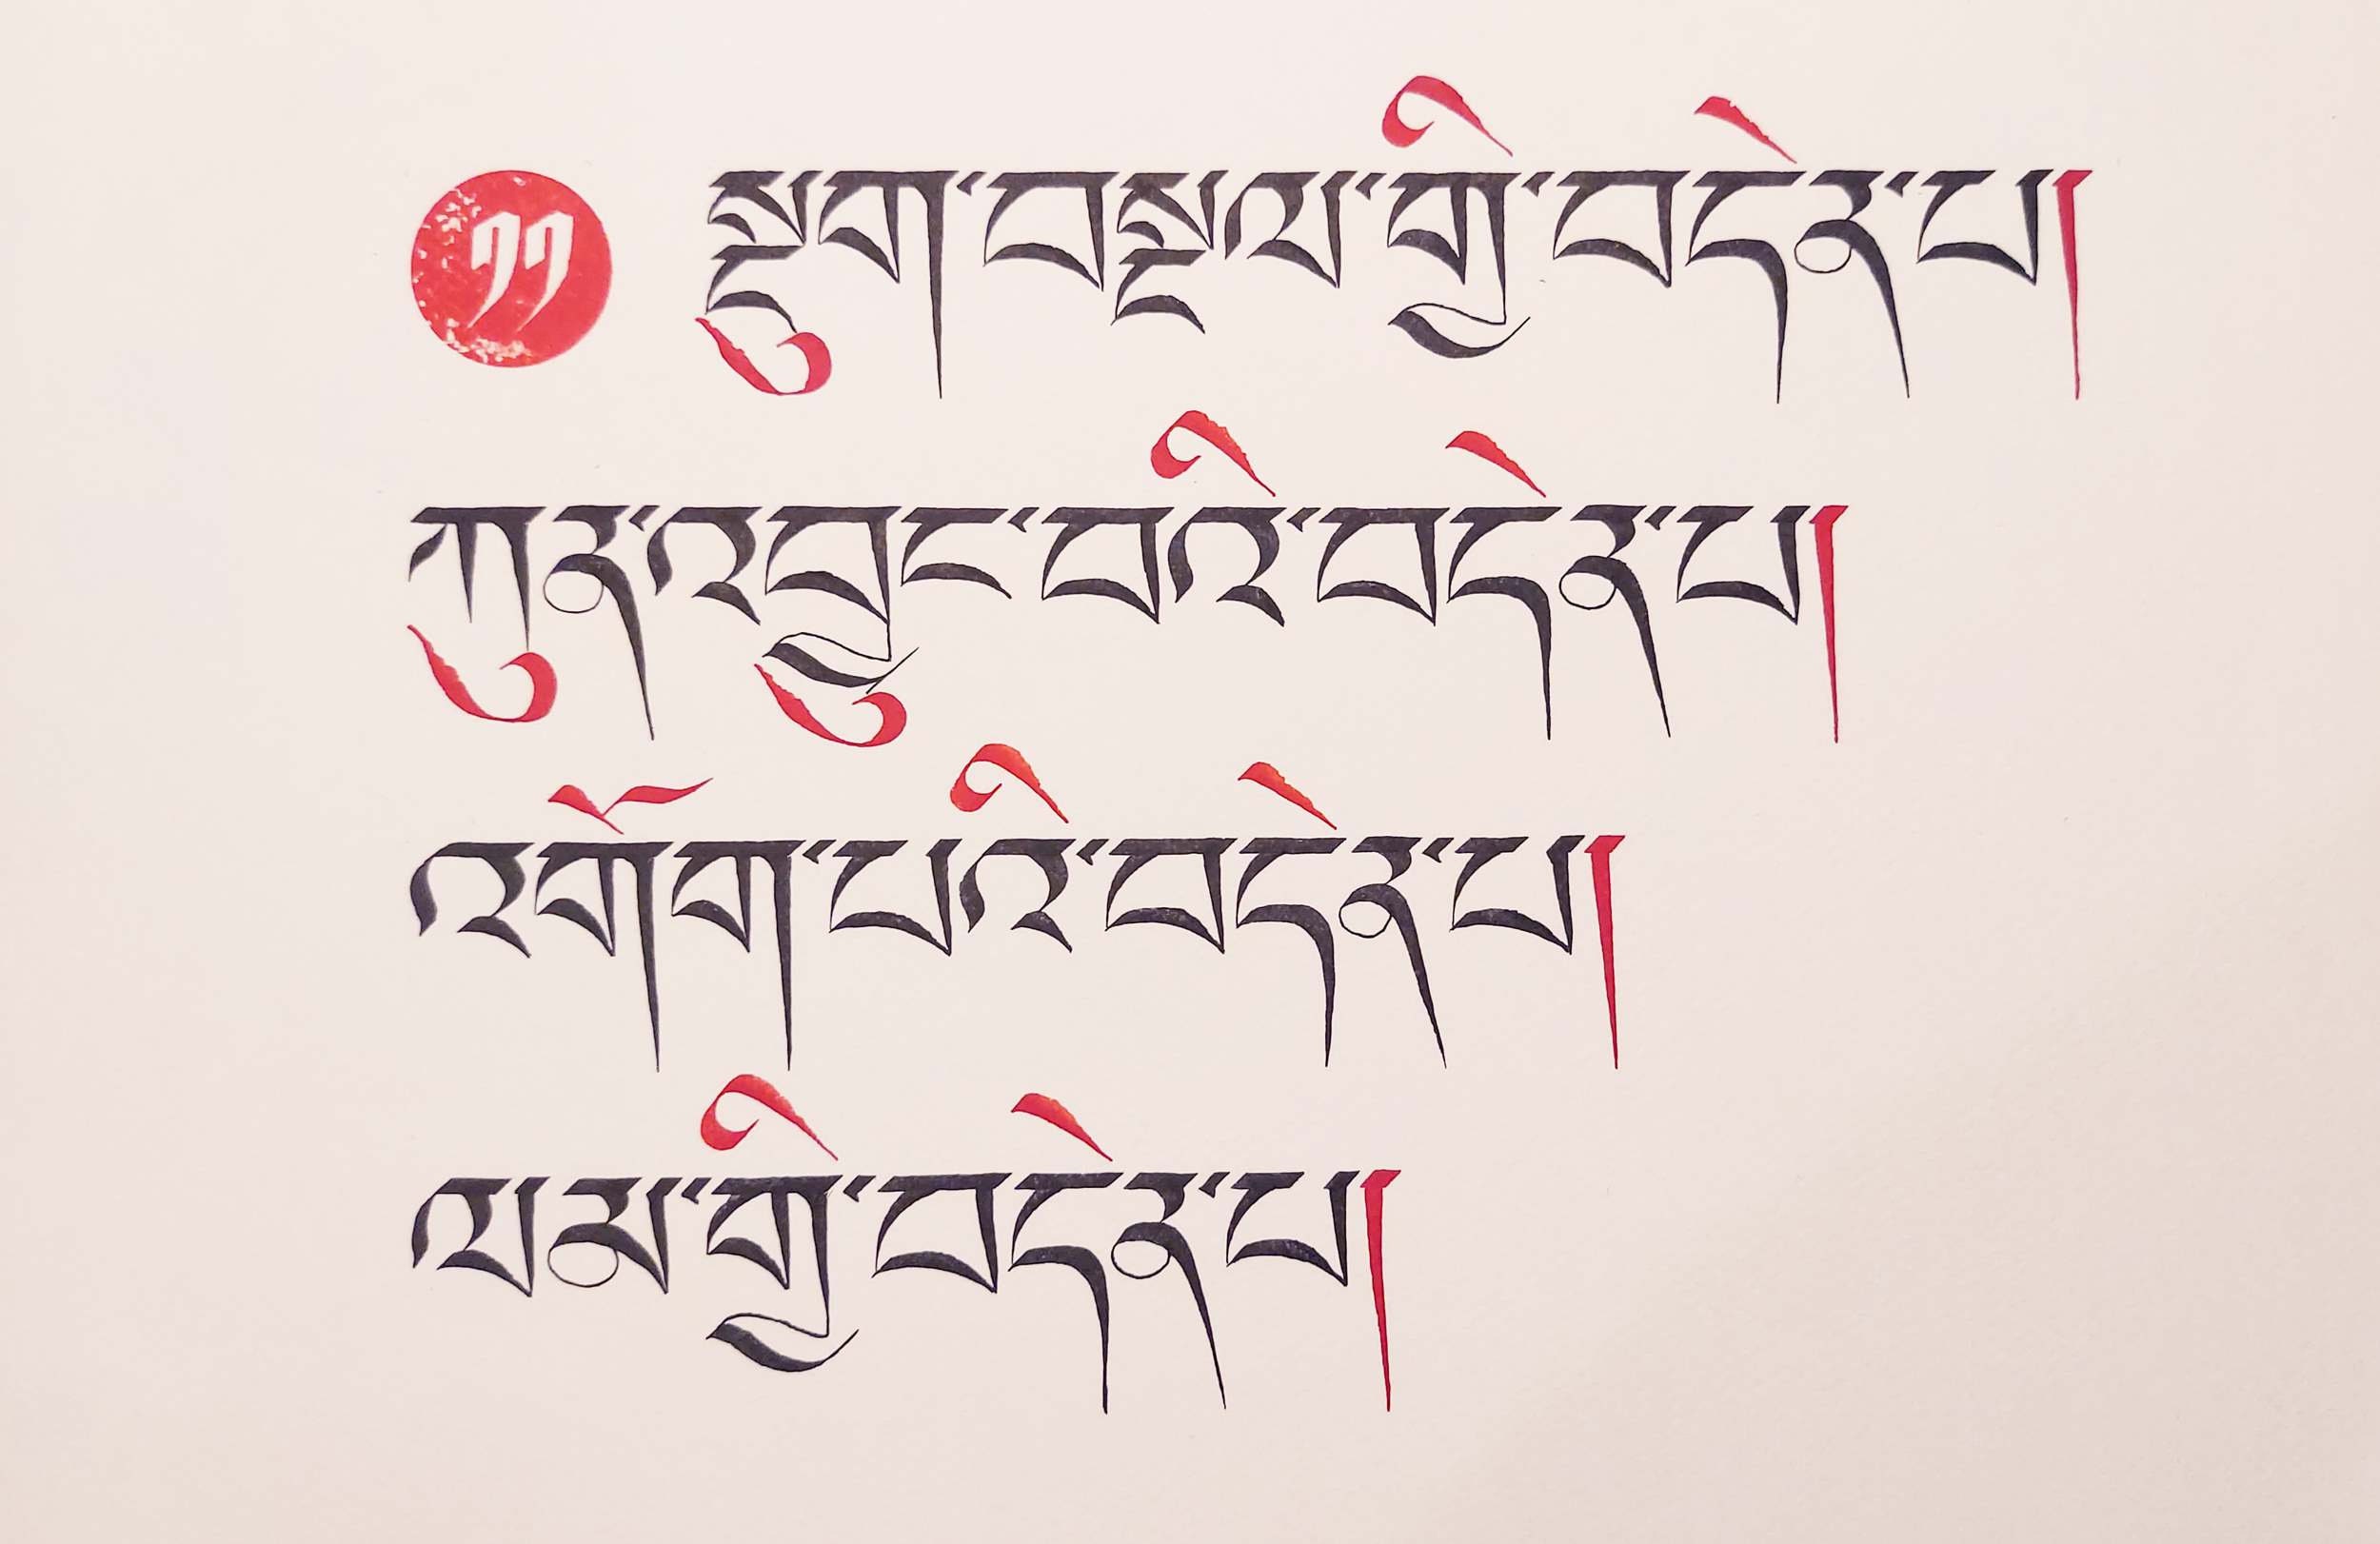 ༡༡ སྡུག་བསྔལ་གྱི་བདེན་པ།
ཀུན་འབྱུང་བའི་བདེན་པ།
འགོག་པའི་བདེན་པ།
ལམ་གྱི་བདེན་པ།